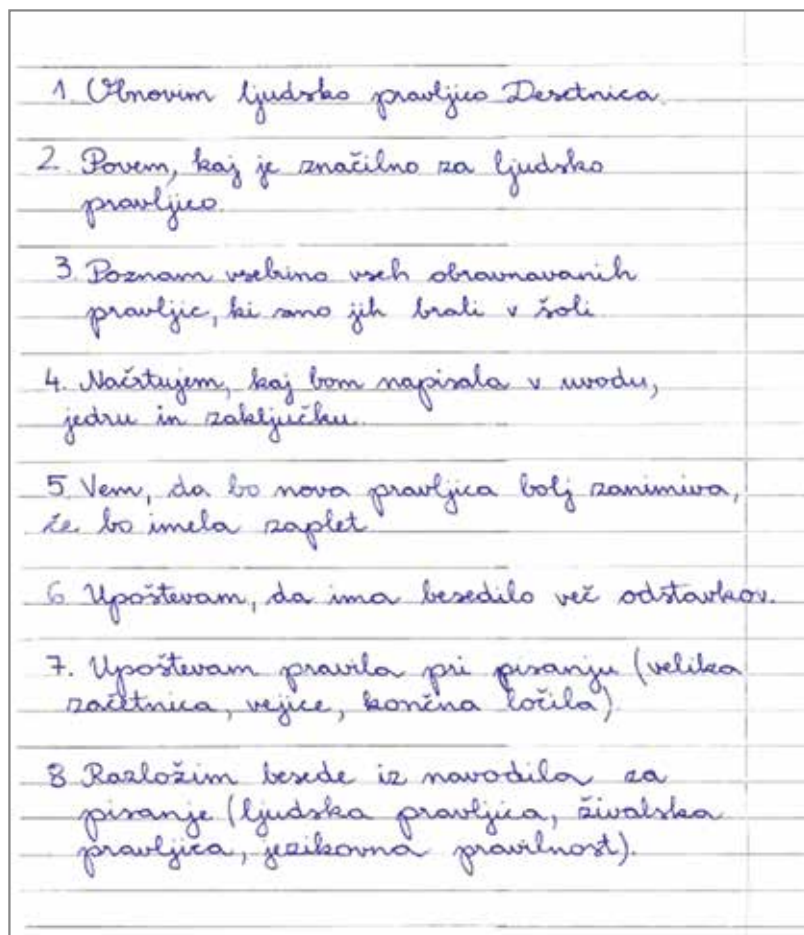 1. Obnovim ljudsko pravljico Desetnica.
2. Povem, kaj je značilno za ljudsko
pravljico.
3. Poznam vsebino vseh obravnavanih
pravljic, ki smo jih brali v šoli
4. Načrtujem, kaj bom napisala v uvodu,
jedru in zaključku.
5. Vem, da bo nova pravljica bolj zanimiva,
če bo imela zaplet
6 Upoštevam, da ima besedilo več odstavkov.
7. Upoštevam pravila pri pisanju (velika
začetnica, vejice, končna ločila)
8 Razložim besede iz navodila za
pisanje (ljudska pravljica, živalska
pravljica, jezikovna pravilnost).